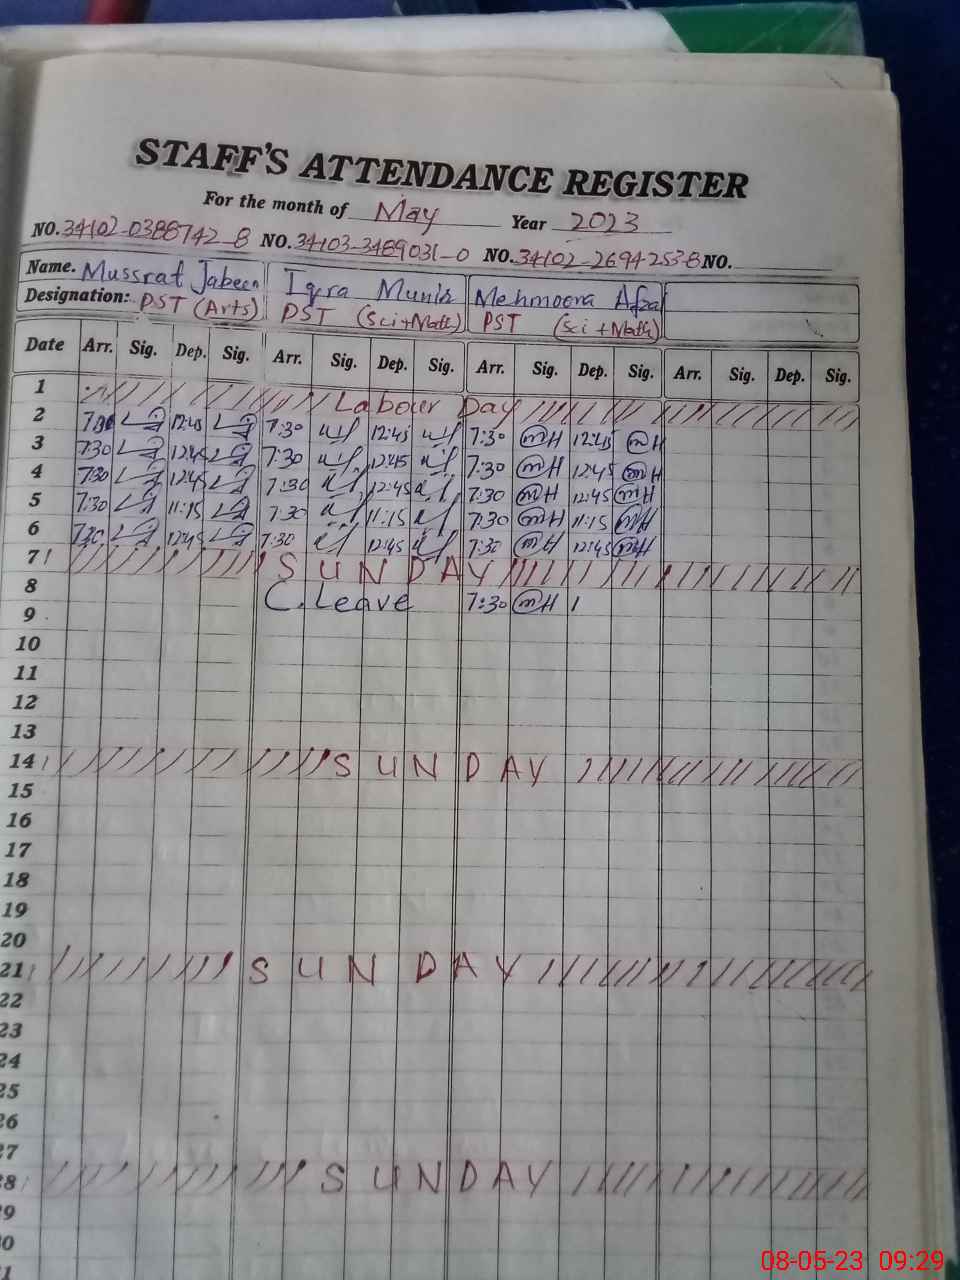 STAFF'S ATTENDANCE REGISTER
For the month of May Year 2023
NO. 34102-0388742-8 NO. 34103-3489031-0 NO. 34102-2694253-8 NO.
Name. Mussrat Jabeen Iqra Munir Mehmoona Afzal
Designation: PST (Arts) PST (Sci+Math) PST (Sci+Math)
Date Arr. Sig. Dep. Sig. Arr. Sig. Dep. Sig. Arr. Sig. Dep. Sig. Arr. Sig. Dep. Sig.
1 Labour Day
2 7:30 12:45 7:30 12:45 7:30 mH 12:45 mH
3 7:30 12:45 7:30 12:45 7:30 mH 12:45 mH
4 7:30 12:45 7:30 12:45 7:30 mH 12:45 mH
5 7:30 11:15 7:30 11:15 7:30 mH 11:15 mH
6 7:30 12:45 7:30 12:45 7:30 mH 12:45 mH
7 SUNDAY
8 C. Leave 7:30 mH 1
9
10
11
12
13
14 SUNDAY
15
16
17
18
19
20
21 SUNDAY
22
23
24
25
26
27
28 SUNDAY
29
30
31
08-05-23 09:29